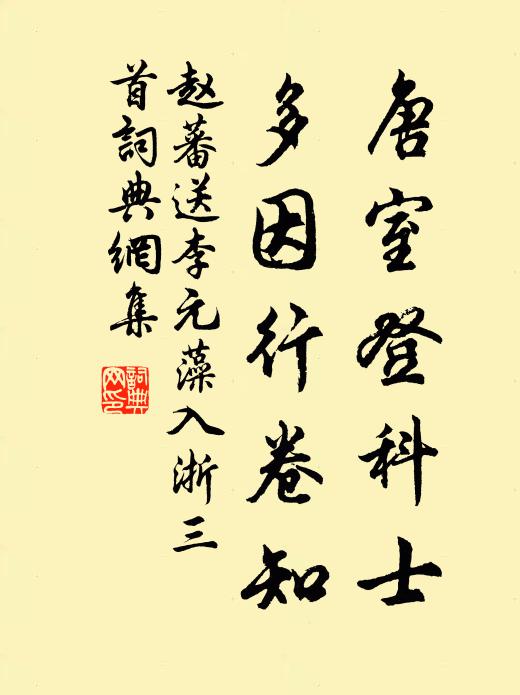 唐室登科士
多因行卷知
赵蕃送李元藻入浙三
首詞典網集
詞典
网印